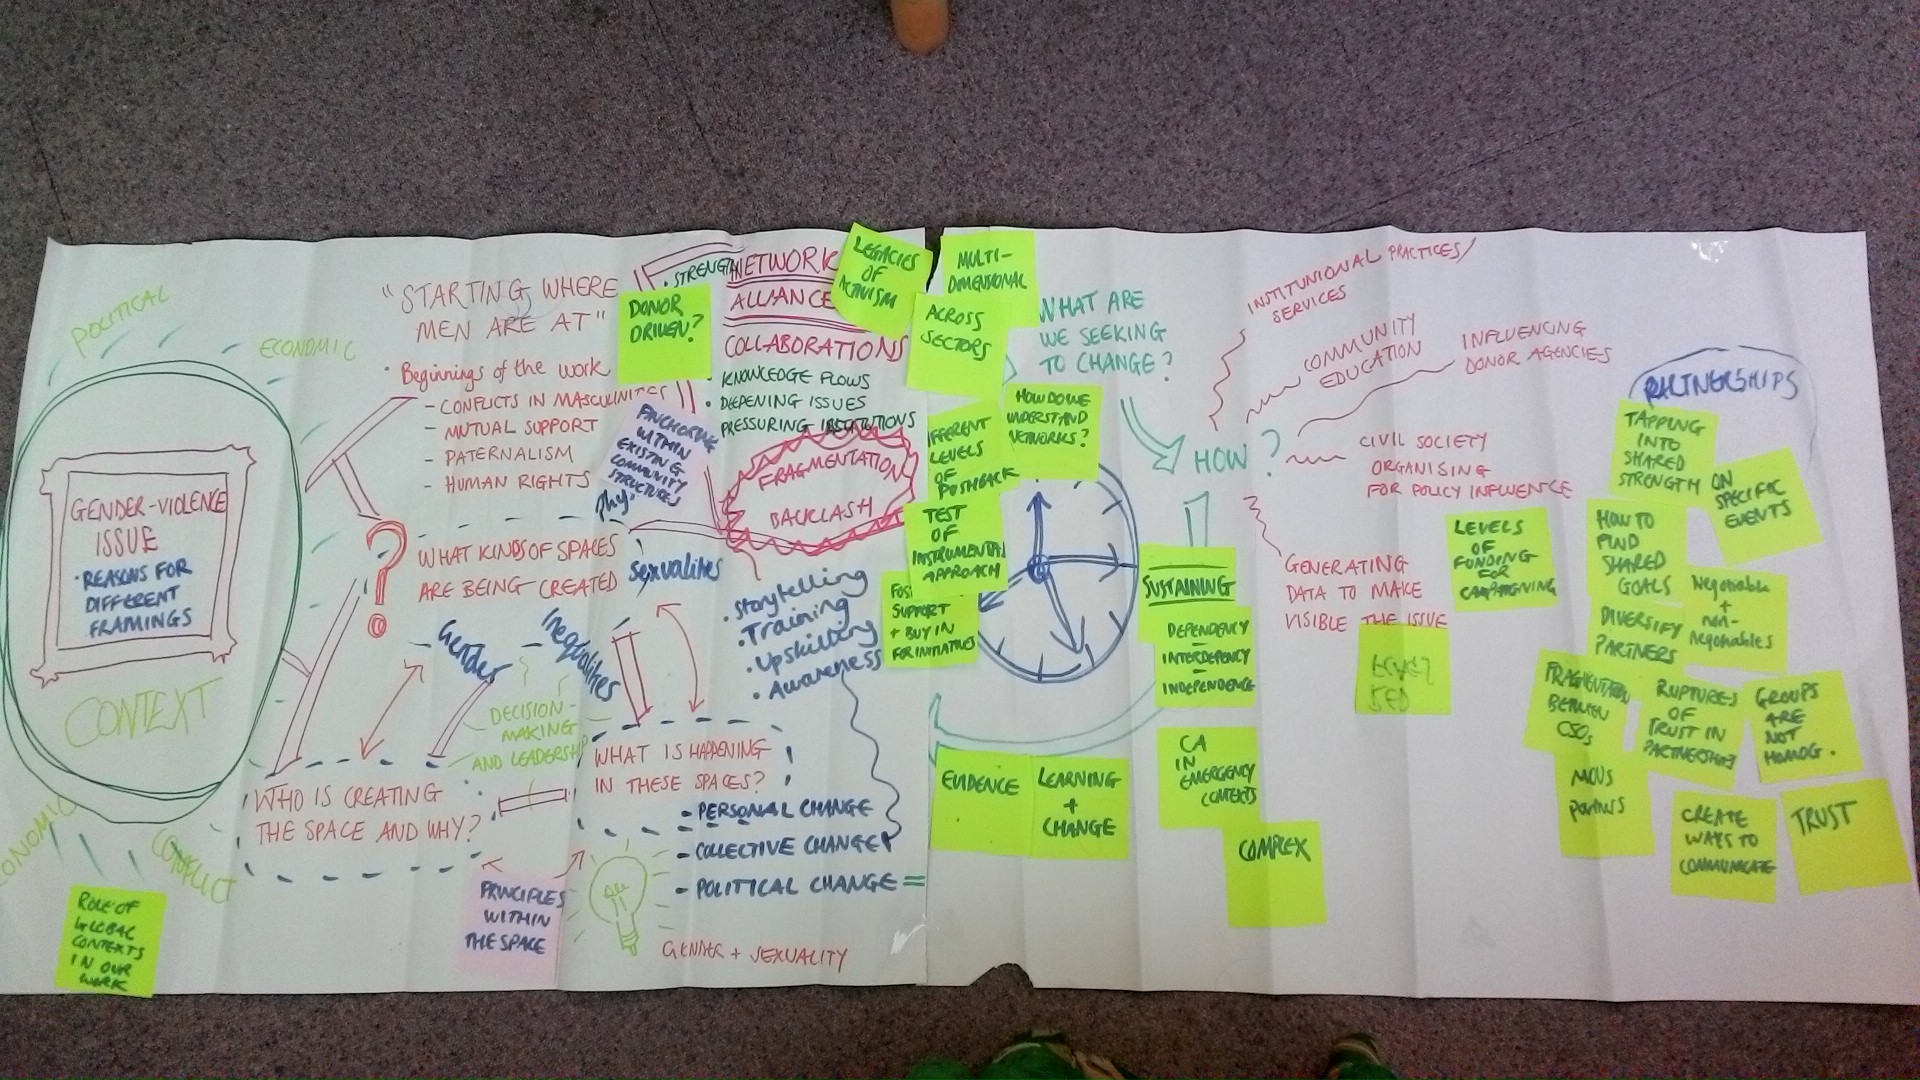 POLITICAL
ECONOMIC
GENDER-VIOLENCE
ISSUE
• REASONS FOR
DIFFERENT
FRAMINGS
CONTEXT
CONFLICT
ROLE OF
GLOBAL
CONTEXTS
IN OUR
WORK
"STARTING WHERE
MEN ARE AT"
• Beginnings of the work
- CONFLICTS IN MASCULINITIES
- MUTUAL SUPPORT
- PATERNALISM
- HUMAN RIGHTS
?
WHAT KINDS OF SPACES
ARE BEING CREATED
Gender
Inequalities
Sexualities
DECISION-
MAKING
AND LEADERSHIP
WHO IS CREATING
THE SPACE AND WHY?
WHAT IS HAPPENING
IN THESE SPACES?
- PERSONAL CHANGE
- COLLECTIVE CHANGE
- POLITICAL CHANGE =
PRINCIPLES
WITHIN
THE SPACE
GENDER + SEXUALITY
DONOR
DRIVEN?
ANCHORING
WITHIN
EXISTING
COMMUNITY
STRUCTURES
• STRENGTH
NETWORK
ALLIANCE
COLLABORATIONS
• KNOWLEDGE FLOWS
• DEEPENING ISSUES
PRESSURING INSTITUTIONS
FRAGMENTATION
BACKLASH
• Storytelling
• Training
• Upskilling
• Awareness
LEGACIES
OF
ACTIVISM
MULTI-
DIMENSIONAL
ACROSS
SECTORS
HOW DO WE
UNDERSTAND
NETWORKS?
IFFERENT
LEVELS
OF
PUSHBACK
TEST
OF
INSTRUMENTAL
APPROACH
SUPPORT
+ BUY IN
FOR INITIATIVES
EVIDENCE
LEARNING
+
CHANGE
WHAT ARE
WE SEEKING
TO CHANGE?
HOW ?
INSTITUNIONAL PRACTICES/
SERVICES
COMMUNITY
EDUCATION
INFLUENCING
DONOR AGENCIES
CIVIL SOCIETY
ORGANISING
FOR POLICY INFLUENCE
GENERATING
DATA TO MAKE
VISIBLE THE ISSUE
SUSTAINING
DEPENDENCY
-
INTERDEPENCY
-
INDEPENDENCE
CA
IN
EMERGENCY
CONTEXTS
COMPLEX
LEVELS
OF
FUNDING
FOR
CAMPAIGNING
PARTNERSHIPS
TAPPING
INTO
SHARED
STRENGTH
ON
SPECIFIC
EVENTS
HOW TO
FIND
SHARED
GOALS
Negotiable
+
non-
Negotiables
DIVERSIFY
PARTNERS
FRAGMENTATION
BETWEEN
CSOs
RUPTURES
OF
TRUST IN
PARTNERSHIPS
GROUPS
ARE
NOT
HOMOG.
partners
CREATE
WAYS TO
COMMUNICATE
TRUST